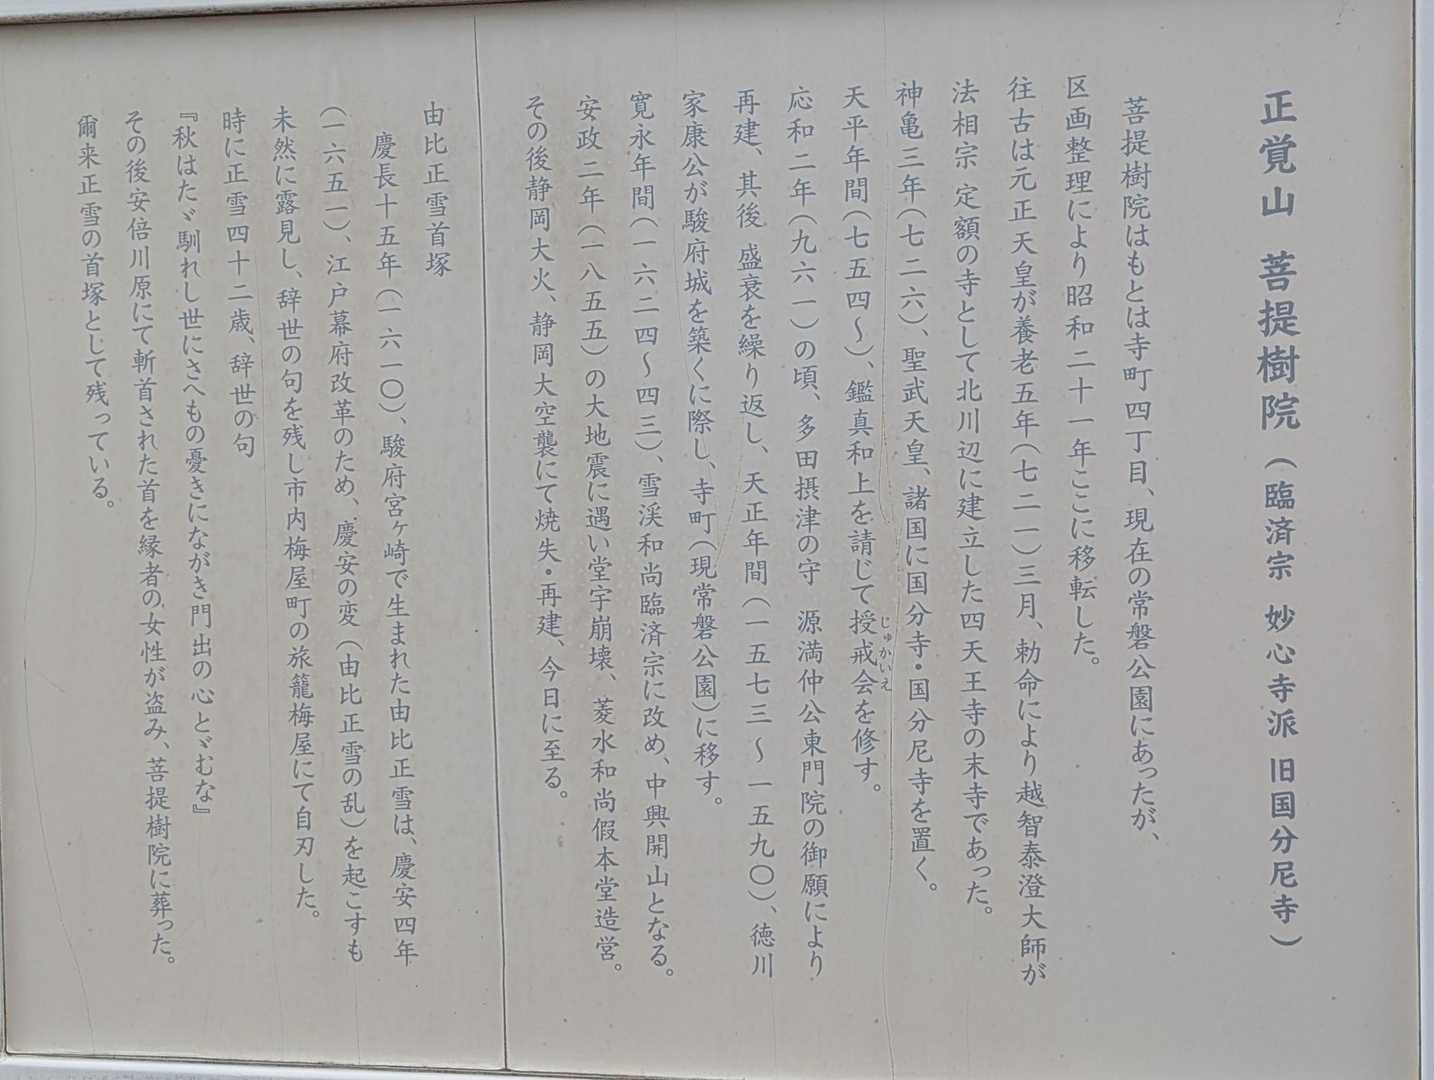 正覚山 菩提樹院（臨済宗 妙心寺派 旧国分尼寺）
菩提樹院はもとは寺町四丁目、現在の常磐公園にあったが、
区画整理により昭和二十一年ここに移転した。
往古は元正天皇が養老五年（七二一）三月、勅命により越智泰澄大師が
法相宗 定額の寺として北川辺に建立した四天王寺の末寺であった。
神亀三年（七二六）、聖武天皇、諸国に国分寺・国分尼寺を置く。
天平年間（七五四～）、鑑真和上を請じて授戒会を修す。
じゅかいえ
応和二年（九六一）の頃、多田摂津の守 源満仲公東門院の御願により
再建、其後 盛衰を繰り返し、天正年間（一五七三～一五九〇）、徳川
家康公が駿府城を築くに際し、寺町（現常磐公園）に移す。
寛永年間（一六二四～四三）、雪渓和尚臨済宗に改め、中興開山となる。
安政二年（一八五五）の大地震に遇い堂宇崩壊、菱水和尚假本堂造営。
その後静岡大火、静岡大空襲にて焼失・再建、今日に至る。
由比正雪首塚
慶長十五年（一六一〇）、駿府宮ヶ崎で生まれた由比正雪は、慶安四年
（一六五一）、江戸幕府改革のため、慶安の変（由比正雪の乱）を起こすも
未然に露見し、辞世の句を残し市内梅屋町の旅籠梅屋にて自刃した。
時に正雪四十二歳、辞世の句
『秋はたゞ馴れし世にさへもの憂きにながき門出の心とゞむな』
その後安倍川原にて斬首された首を縁者の女性が盗み、菩提樹院に葬った。
爾来正雪の首塚として残っている。